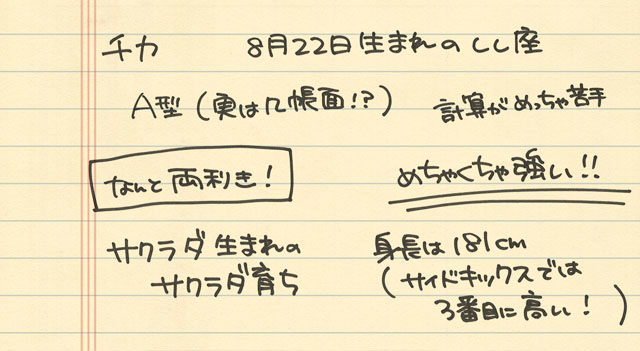 チカ 8月22日生まれのしし座
A型(実は几帳面!?) 計算がめっちゃ苦手
なんと両利き! めちゃくちゃ強い!!
サクラダ生まれの 身長は181cm
サクラダ育ち (サイドキックスでは
3番目に高い!)